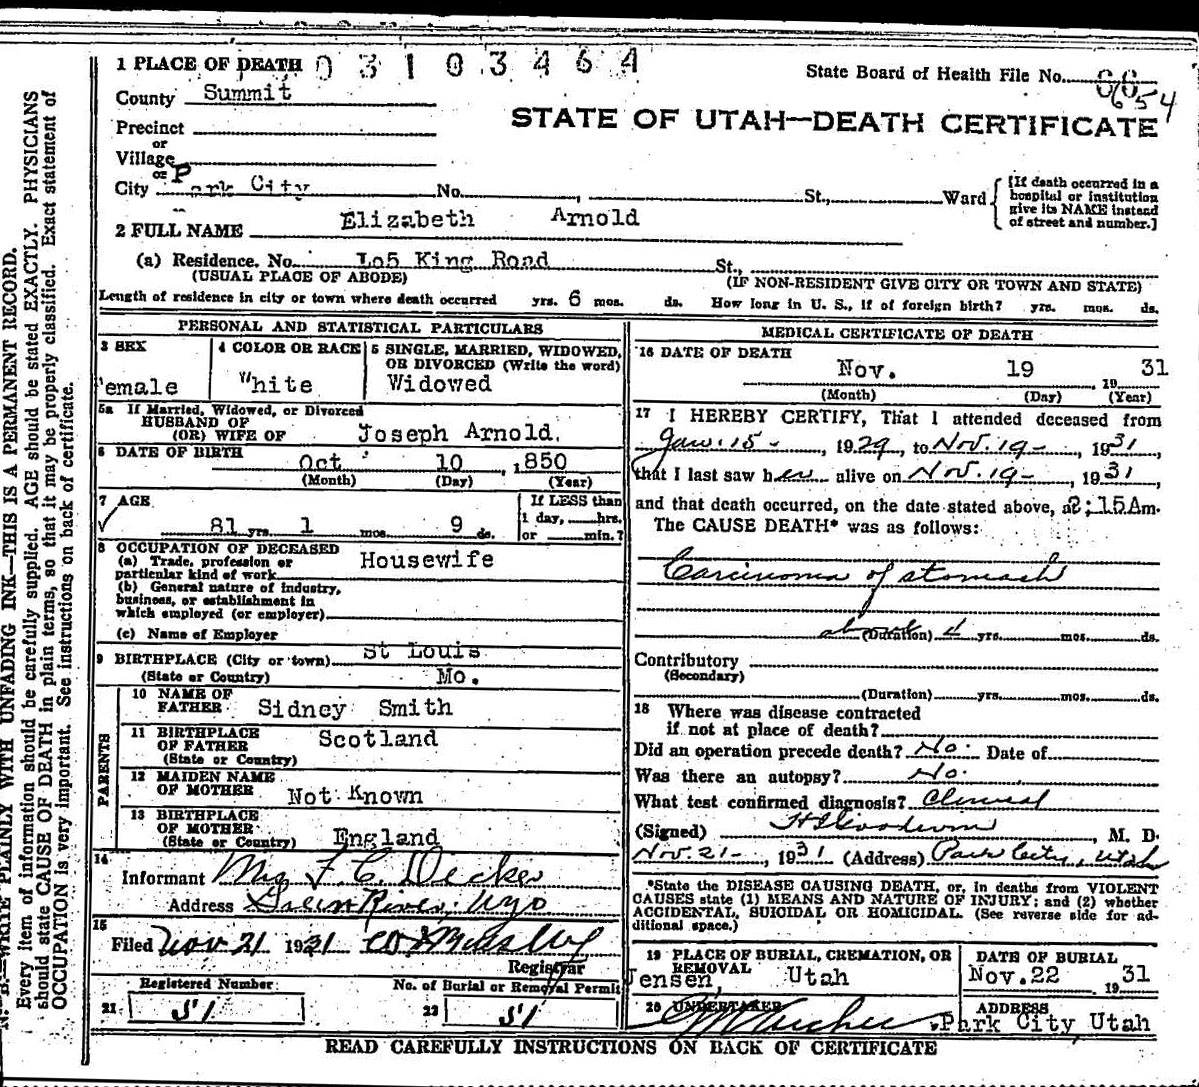 1 PLACE OF DEATH 03103464
State Board of Health File No. 66
654
County Summit
STATE OF UTAH—DEATH CERTIFICATE
Precinct
or
Village
or
City Park City No. , St., Ward
[If death occurred in a hospital or institution give its NAME instead of street and number.]
2 FULL NAME Elizabeth Arnold
(a) Residence. No. 105 King Road St.,
(USUAL PLACE OF ABODE) (IF NON-RESIDENT GIVE CITY OR TOWN AND STATE)
Length of residence in city or town where death occurred yrs. 6 mos. ds. How long in U. S., if of foreign birth? yrs. mos. ds.
PERSONAL AND STATISTICAL PARTICULARS
3 SEX
emale
4 COLOR OR RACE
White
5 SINGLE, MARRIED, WIDOWED,
OR DIVORCED (Write the word)
Widowed
5a If Married, Widowed, or Divorced
HUSBAND OF
(OR) WIFE OF Joseph Arnold.
6 DATE OF BIRTH
Oct 10 , 1850
(Month) (Day) (Year)
7 AGE
81 yrs. 1 mos. 9 ds.
If LESS than
1 day, hrs.
or min.?
8 OCCUPATION OF DECEASED
(a) Trade, profession or
particular kind of work Housewife
(b) General nature of industry,
business, or establishment in
which employed (or employer)
(c) Name of Employer
9 BIRTHPLACE (City or town) St Louis
(State or Country) Mo.
PARENTS
10 NAME OF
FATHER Sidney Smith
11 BIRTHPLACE
OF FATHER Scotland
(State or Country)
12 MAIDEN NAME
OF MOTHER Not Known
13 BIRTHPLACE
OF MOTHER
(State or Country) England
14
Informant Mrs F. C. Decker
Address Green River, Wyo
15
Filed Nov 21 1931
Registrar
Registered Number
21 51
No. of Burial or Removal Permit
22 51
MEDICAL CERTIFICATE OF DEATH
16 DATE OF DEATH
Nov. 19 , 19 31
(Month) (Day) (Year)
17 I HEREBY CERTIFY, That I attended deceased from
Jan. 15 - , 1929, to Nov. 19 - 1931,
that I last saw her alive on Nov. 19 - , 1931,
and that death occurred, on the date stated above, a2:15Am.
The CAUSE DEATH* was as follows:
Carcinoma of stomach
about (Duration) 4 yrs. mos. ds.
Contributory
(Secondary)
(Duration) yrs. mos. ds.
18 Where was disease contracted
if not at place of death?
Did an operation precede death? No. Date of
Was there an autopsy? No.
What test confirmed diagnosis? Clinical
(Signed) , M. D.
Nov. 21 - , 1931 (Address) Park City, Utah
*State the DISEASE CAUSING DEATH, or, in deaths from VIOLENT
CAUSES state (1) MEANS AND NATURE OF INJURY; and (2) whether
ACCIDENTAL, SUICIDAL OR HOMICIDAL. (See reverse side for ad-
ditional space.)
19 PLACE OF BURIAL, CREMATION, OR
REMOVAL
Jensen, Utah
DATE OF BURIAL
Nov.22 , 19 31
20 UNDERTAKER
ADDRESS
Park City Utah
READ CAREFULLY INSTRUCTIONS ON BACK OF CERTIFICATE
N. B.—WRITE PLAINLY WITH UNFADING INK—THIS IS A PERMANENT RECORD.
Every item of information should be carefully supplied. AGE should be stated EXACTLY. PHYSICIANS
should state CAUSE OF DEATH in plain terms, so that it may be properly classified. Exact statement of
OCCUPATION is very important. See instructions on back of certificate.